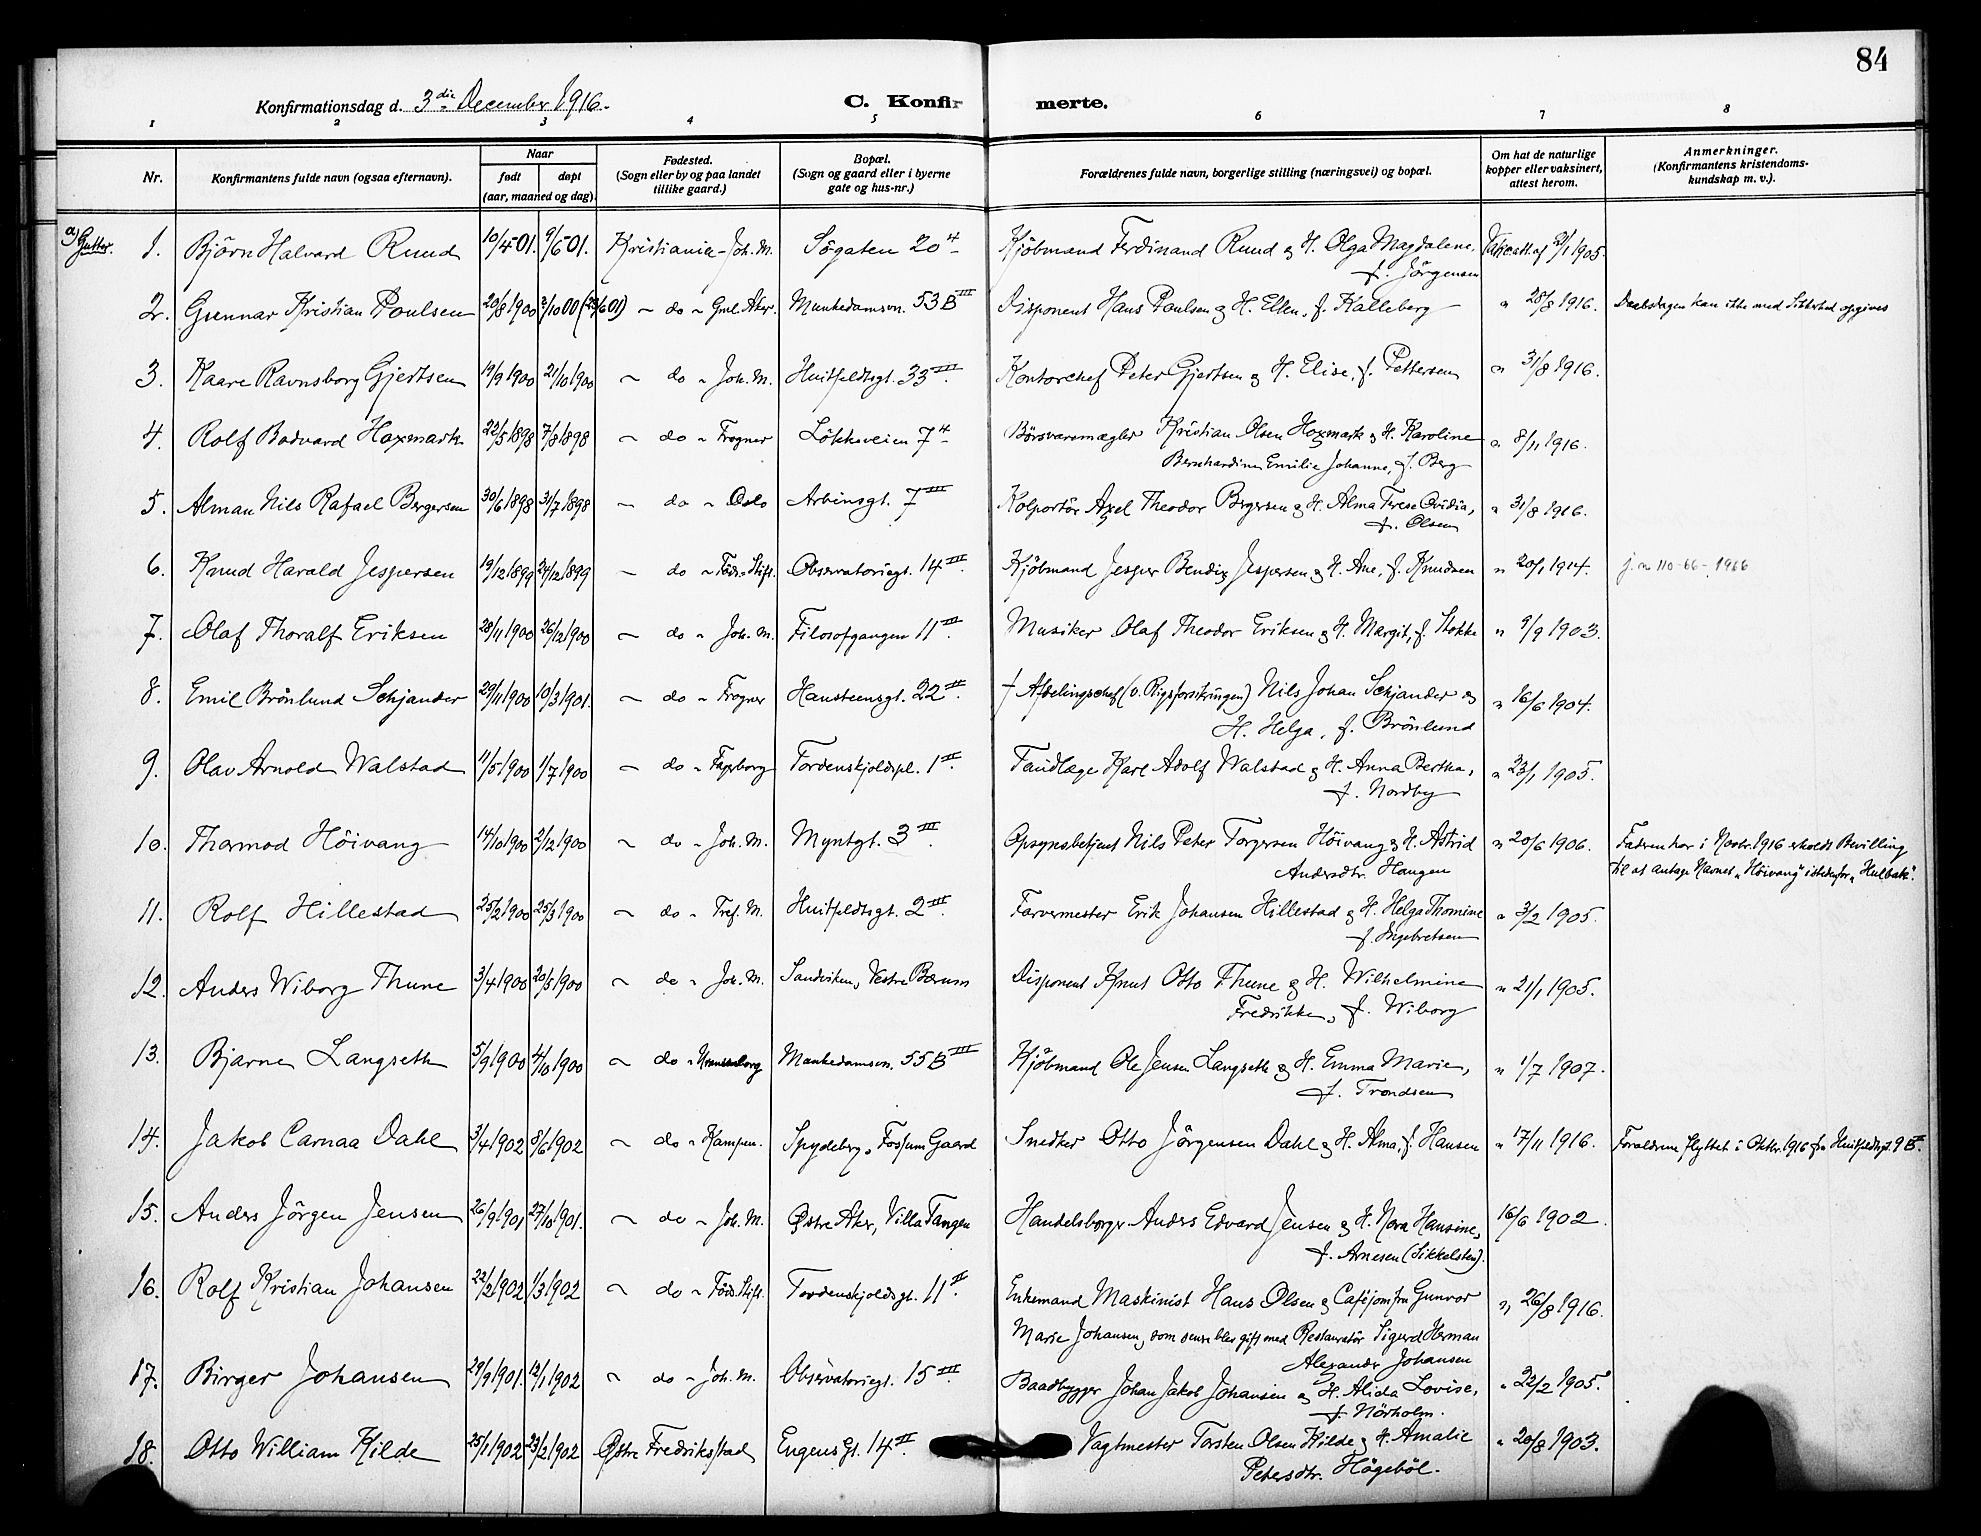 84
Konfirmationsdag d. 3die December 1916.
C. Konfirmerte.
1 2 3 4 5 6 7 8
Nr.
Konfirmantens fulde navn (ogsaa efternavn).
Naar
født døpt
(aar, maaned og dag).
Fødested.
(Sogn eller by og paa landet
tillike gaard.)
Bopæl.
(Sogn og gaard eller i byerne
gate og hus-nr.)
Forældrenes fulde navn, borgerlige stilling (næringsvei) og bopæl.
Om hat de naturlige
kopper eller vaksinert,
attest herom.
Anmerkninger.
(Konfirmantens kristendoms-
kundskap m. v.).
a) Gutter.
1. Björn Halvard Ruud 10/4-01. 9/6-01. Kristiania-Joh. M. Sögaten 20 4 Kjöbmand Ferdinand Ruud og H. Olga Magdalene, 1905.
f. Jörgensen
2. Gunnar Kristian Poulsen 20/8 1900 - do - Gml. Aker. Munkedamsvn. 53B III Disponent Hans Poulsen og H. Ellen, f. Kalleberg " 28/8 1916. Daabsdagen kan ikke med Sikkerhed opgives
3. Kaare Ravnsborg Gjertsen 19/9 1900 21/10 1900 - do - Joh. M. Huitfeldtsgt. 33 III. Kontorchef Peter Gjertsen og H. Elise, f. Pettersen " 31/8 1916.
4. Rolf Bodvard Hoxmark 22/5 1898 7/8 1898 - do - Frogner Lökkeveien 7 4 Börsvaremægler Kristian Olsen Hoxmark og H. Karoline " 8/11 1916.
Bernhardine Emilie Johanne, f. Berg
5. Alman Nils Rafael Bergersen 30/6 1898 31/7 1898 - do - Oslo Arbinsgt. 7 III Kolportör Axel Theodor Bergersen og H. Alma Terese Ovidia, " 31/8 1916.
f. Olsen
6. Knud Harald Jespersen 19/12 1899 24/12 1899 - do - Föds. Stift. Observatoriegt. 14 III. Kjöbmand Jesper Bendix Jespersen og H. Ane, f. Knudsen " 20/1 1914. j. no 110-66-1966
7. Olaf Thoralf Eriksen 28/11 1900 26/12 1900 - do - Joh. M. Filosofgangen 11 III. Musiker Olaf Theodor Eriksen og H. Margit, f. Stokke " 9/9 1903.
8. Emil Brönlund Schjander 29/11 1900 10/3 1901. - do - Frogner Hansteensgt. 22 II. † Afdelingschef (v. Rigsforsikringen) Nils Johan Schjander og " 16/6 1904.
H. Helga, f. Brönlund
9. Olav Arnold Walstad 11/5 1900 1/7 1900 - do - Fagerborg Tordenskjoldspl. 1 II. Tandlæge Karl Adolf Walstad og H. Anna Bertha, " 23/1 1905.
f. Nordby
10. Thormod Höivang 14/10 1900 2/12 1900 - do - Joh. M. Myntgt. 3 III. Opsynsbetjent Nils Peter Torgersen Höivang og H. Astrid " 20/6 1906. Faderen har i Novbr. 1916 erholdt Bevilling
Andersdtr. Haugen til at antage Navnet "Höivang" istedenfor "Hulbak".
11. Rolf Hillestad 25/2 1900 25/3 1900 - do - Tref. M. Huitfeldtsgt. 2 III. Farvermester Erik Johansen Hillestad og H. Helga Thomine " 3/2 1905.
f. Ingebretsen
12. Anders Wiborg Thune 3/4 1900 20/5 1900 - do - Joh. M. Sandviken, Vestre Bærum Disponent Knut Otto Thune og H. Wilhelmine " 21/1 1905.
Fredrikke, f. Wiborg
13. Bjarne Langseth 5/9 1900 4/10 1900 - do - Munkedamsvn. 55B III Kjöbmand Ole Jensen Langseth og H. Emma Marie, " 1/7 1907.
f. Trondsen
14. Jakob Carnaa Dahl 3/4 1902 8/6 1902 - do - Kampen. Spydeberg, Fossum Gaard Snedker Otto Jörgensen Dahl og H. Alma, f. Hansen " 17/11 1916. Forældrene flyttet i Oktbr. 1916 fra Huitfeldtsgt. 9 B II.
15. Anders Jörgen Jensen 26/9 1901 27/10 1901. - do - Joh. M. Østre Aker, Villa Tangen Handelsborger Anders Edvard Jensen og H. Nora Hansine, 16/6 1902.
f. Arnesen (Sikkelsten).
16. Rolf Kristian Johansen 22/2 1902 1/3 1902 - do - Föds. Stift. Tordenskjoldsgt. 11 II. Enkemand Maskinist Hans Olsen og Caféjomfru Gunvor " 26/8 1916.
Marie Johansen, som senere blev gift med Restauratör Sigurd Herman
Alexander Johansen
17. Birger Johansen 29/9 1901. 12/1 1902 - do - Joh. M. Observatoriegt. 15 III. Baadbygger Johan Jakob Johansen og H. Alida Lovise, " 22/2 1905.
f. Nörholm.
18. Otto William Kilde 25/1 1902 23/2 1902 Østre Fredriksstad Eugens Gt. 14 II. Vagtmester Torsten Olsen Kilde og H. Amalie " 20/8 1903.
Petersdtr. Högeböl.